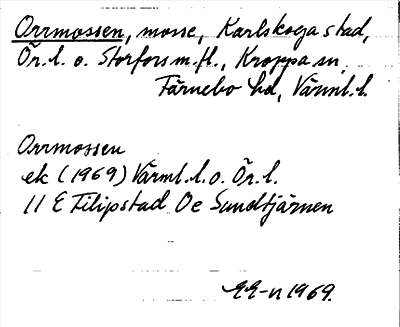 Orrmossen, mosse, Karlskoga stad,
Ör. l. o. Storfors m. fl., Kroppa sn,
Färnebo hd, Värml. l.
Orrmossen
ek (1969) Värml. l. o. Ör. l.
11 E Filipstad Oe Sundtjärnen
EE-n 1969.